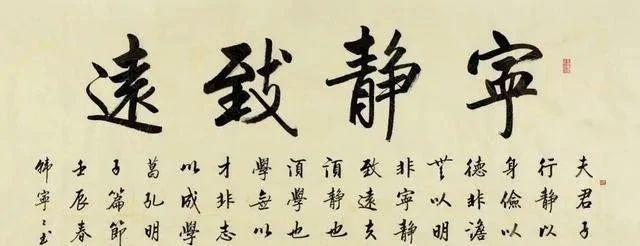 寧静致遠
夫君子
行静以
身儉以
德非澹
無以明
非寧静
致遠夫
須静也
須學也
學無以
才非志
以成學
葛孔明
子篇節
壬辰春
韓寧〻书